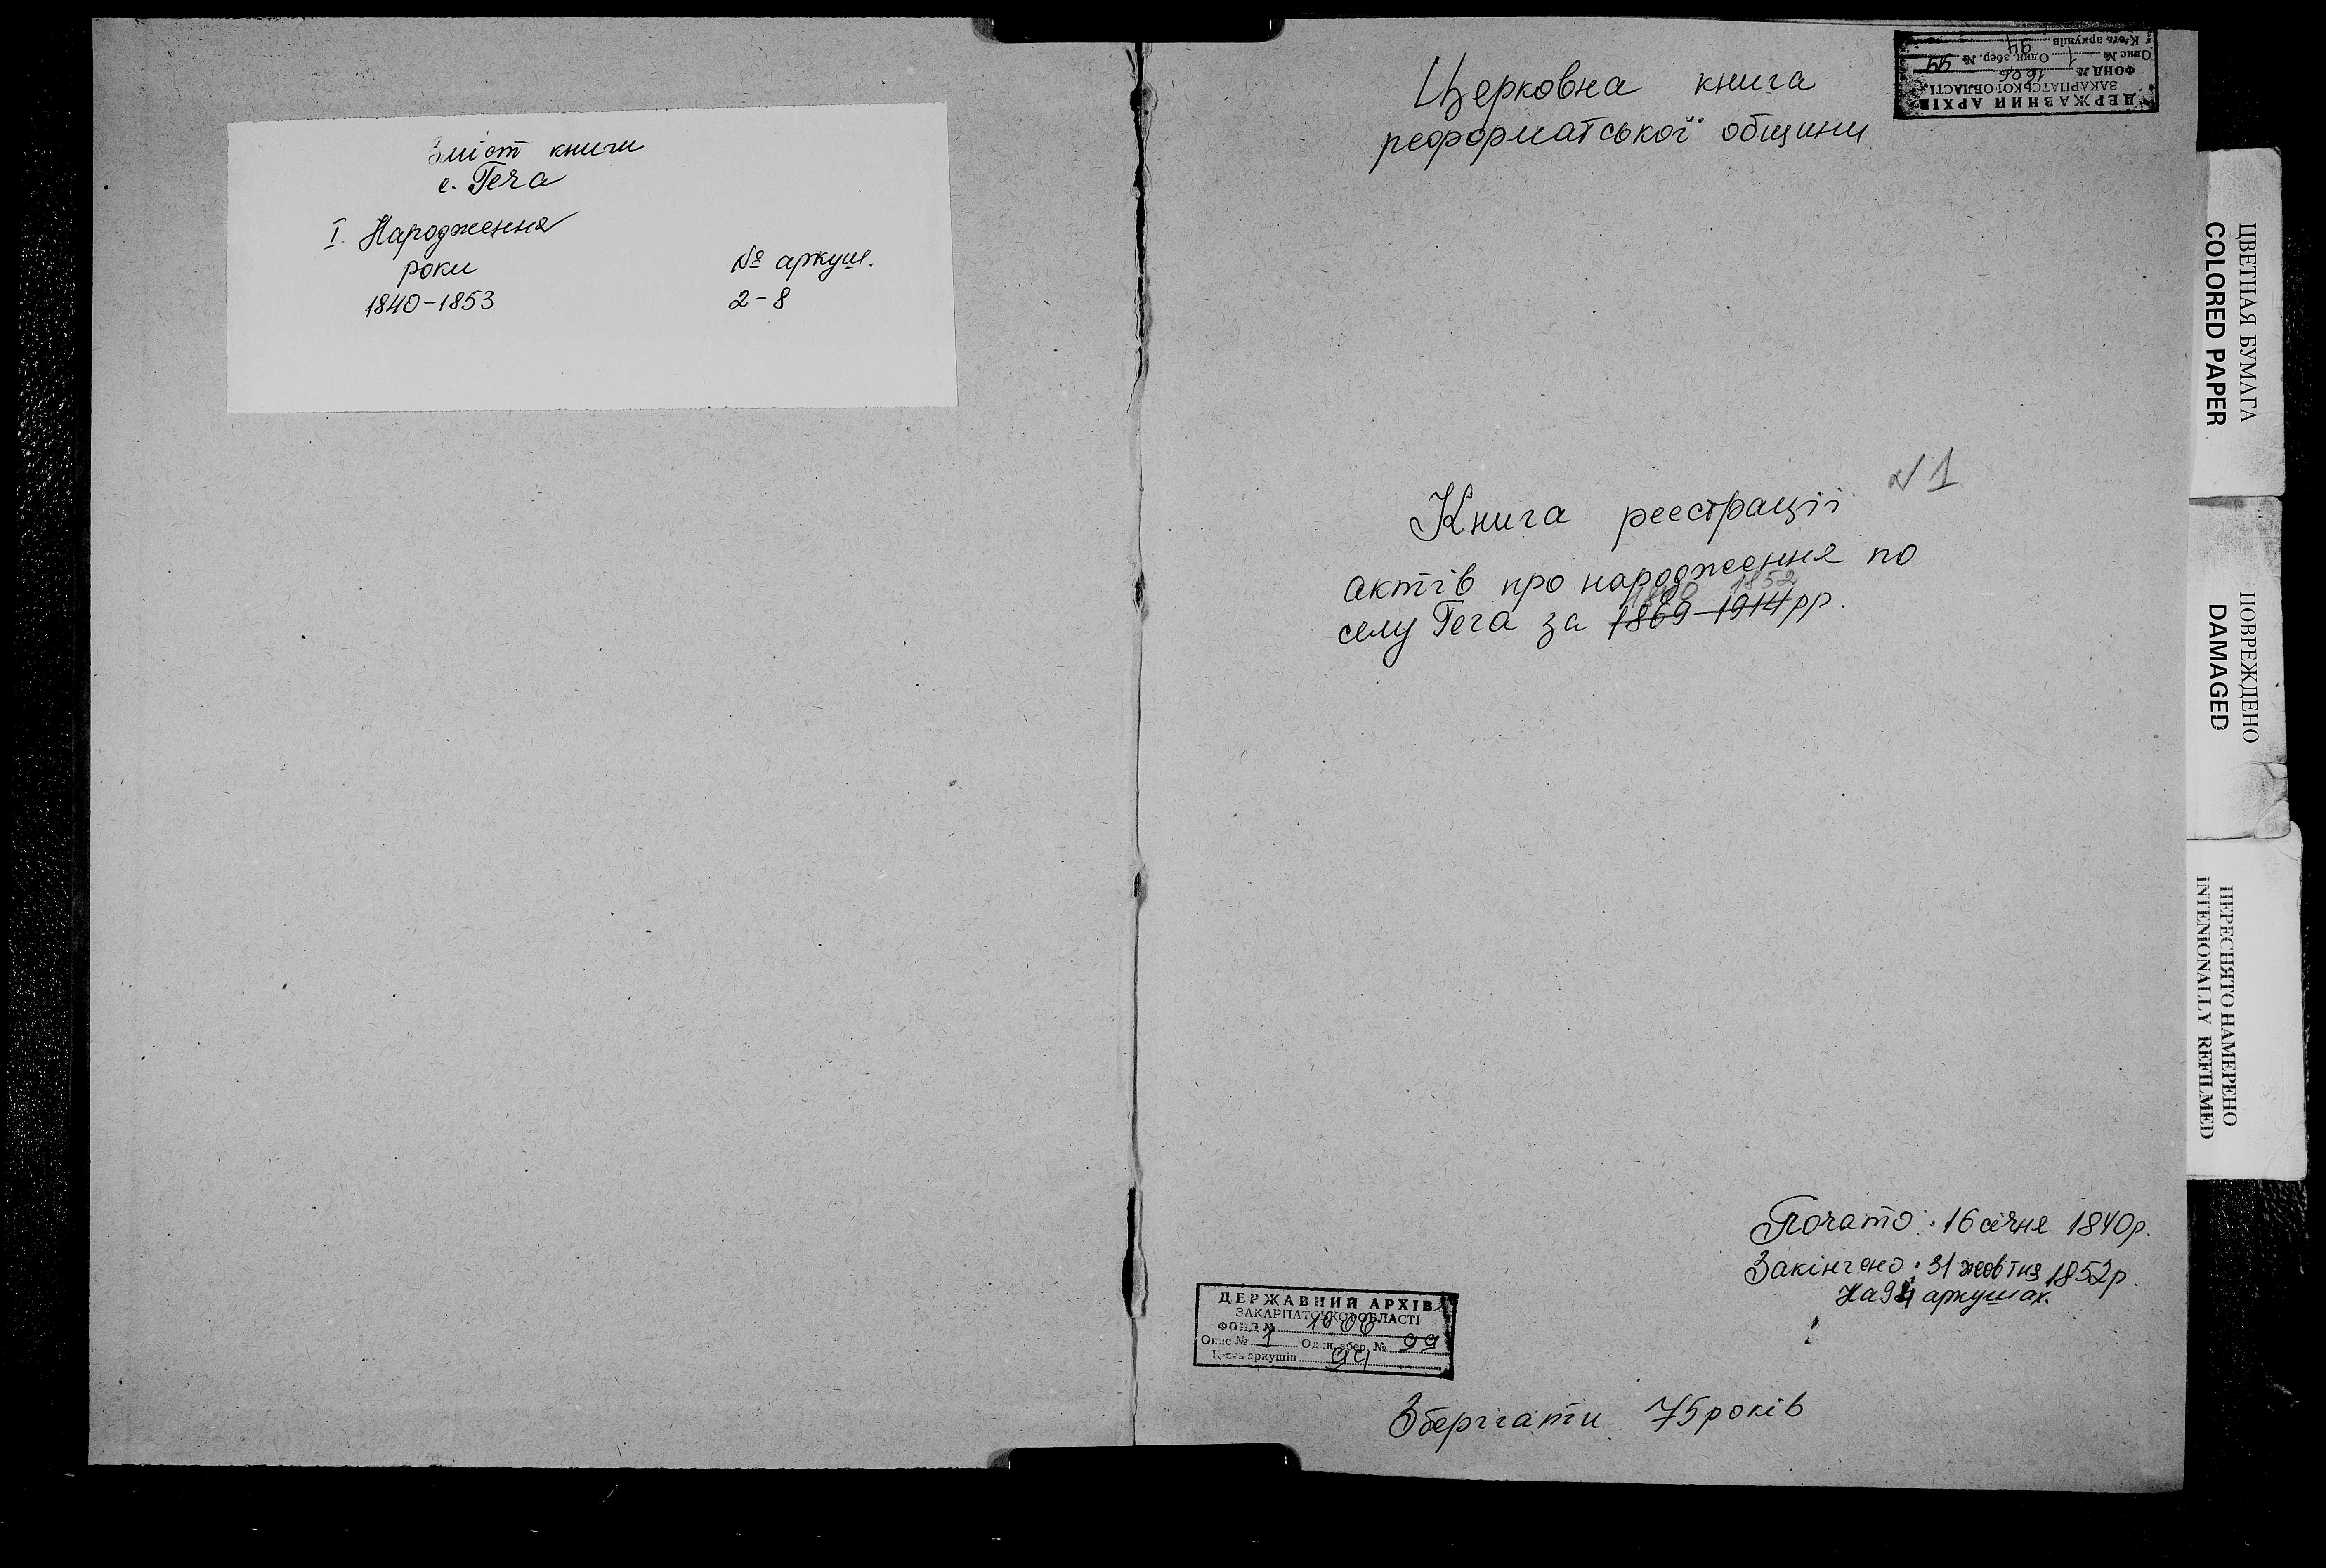 Зміст книги
с. Геча
I. Народження
роки № аркуш.
1840-1853 2-8
ДЕРЖАВНИЙ АРХІВ
ЗАКАРПАТСЬКОЇ ОБЛАСТІ
ФОНД № 1606
Опис № 1 Один. збер. № 99
К-сть аркушів 94
Церковна книга
реформатської общини
N 1
Книга реєстрації
актів про народження по
1852
селу Геча за 1869-1914 рр.
Почато: 16 січня 1840р.
Закінчено: 31 жовтня 1852р.
На 94 аркушах.
ДЕРЖАВНИЙ АРХІВ
ЗАКАРПАТСЬКОЇ ОБЛАСТІ
ФОНД № 1606
Опис № 1 Один. збер. № 99
К-сть аркушів
Зберігати 75 років
ЦВЕТНАЯ БУМАГА
COLORED PAPER
ПОВРЕЖДЕНО
DAMAGED
ПЕРЕСНЯТО НАМЕРЕНО
INTENIONALLY REFILMED